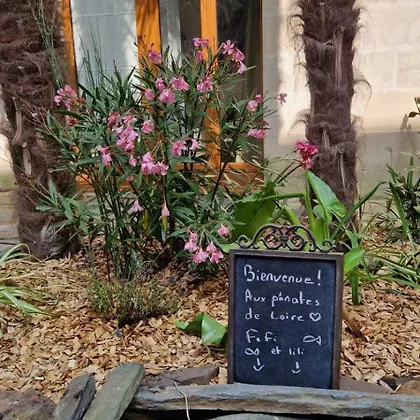 Bienvenue !
Aux pénates
de Loire ♡
FiFi
et lili